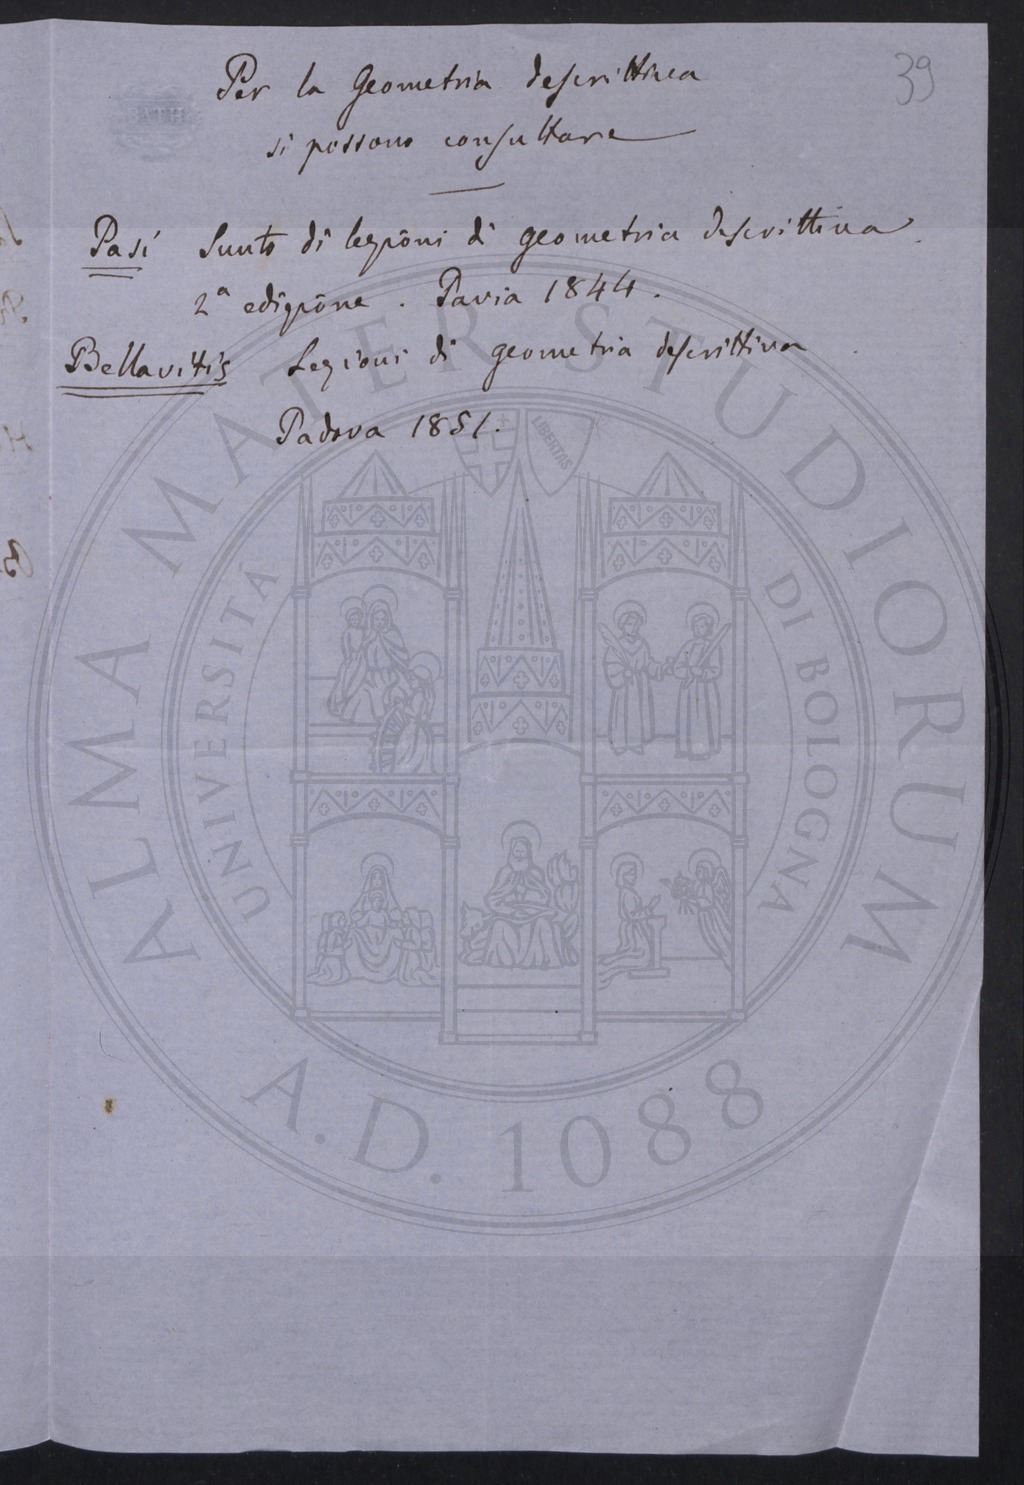 39
Per la Geometria descrittiva
si possono consultare
Pasi Sunto di lezioni di geometria descrittiva
2ª edizione. Pavia 1844.
Bellavitis Lezioni di geometria descrittiva
Padova 1851.
ALMA MATER STUDIORUM
UNIVERSITÀ DI BOLOGNA
LIBERTAS
A.D. 1088